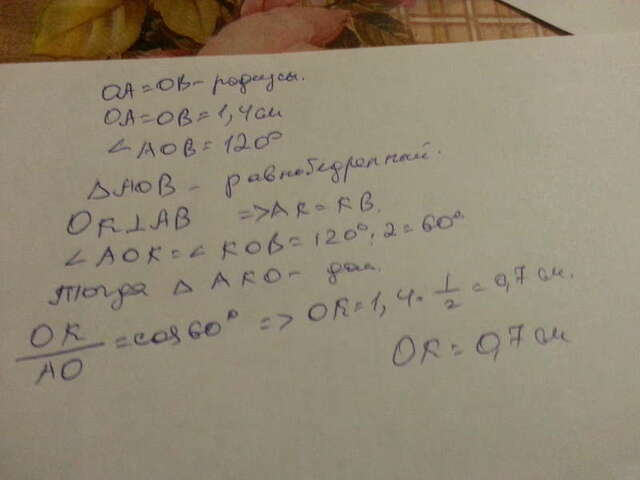 OA=OB - радиусы.
OA=OB=1,4 см
∠AOB=120°
△AOB - равнобедренный.
OK⊥AB =>AK=KB.
∠AOK=∠KOB=120°:2=60°
Тогда △AKO-
OK/AO=cos60° => OK=1,4·1/2=0,7 см.
OK=0,7 см